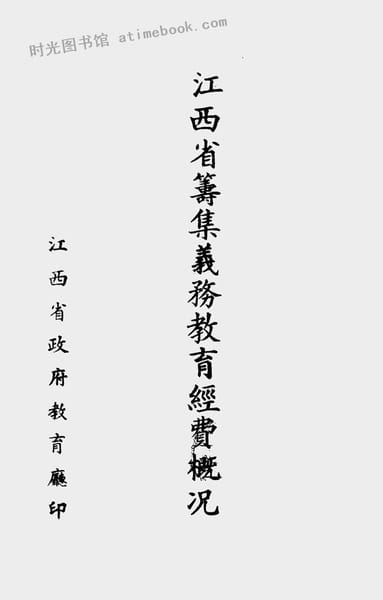 时光图书馆 atimebook.com
江西省籌集義務教育經費概况
江西省政府教育廳印